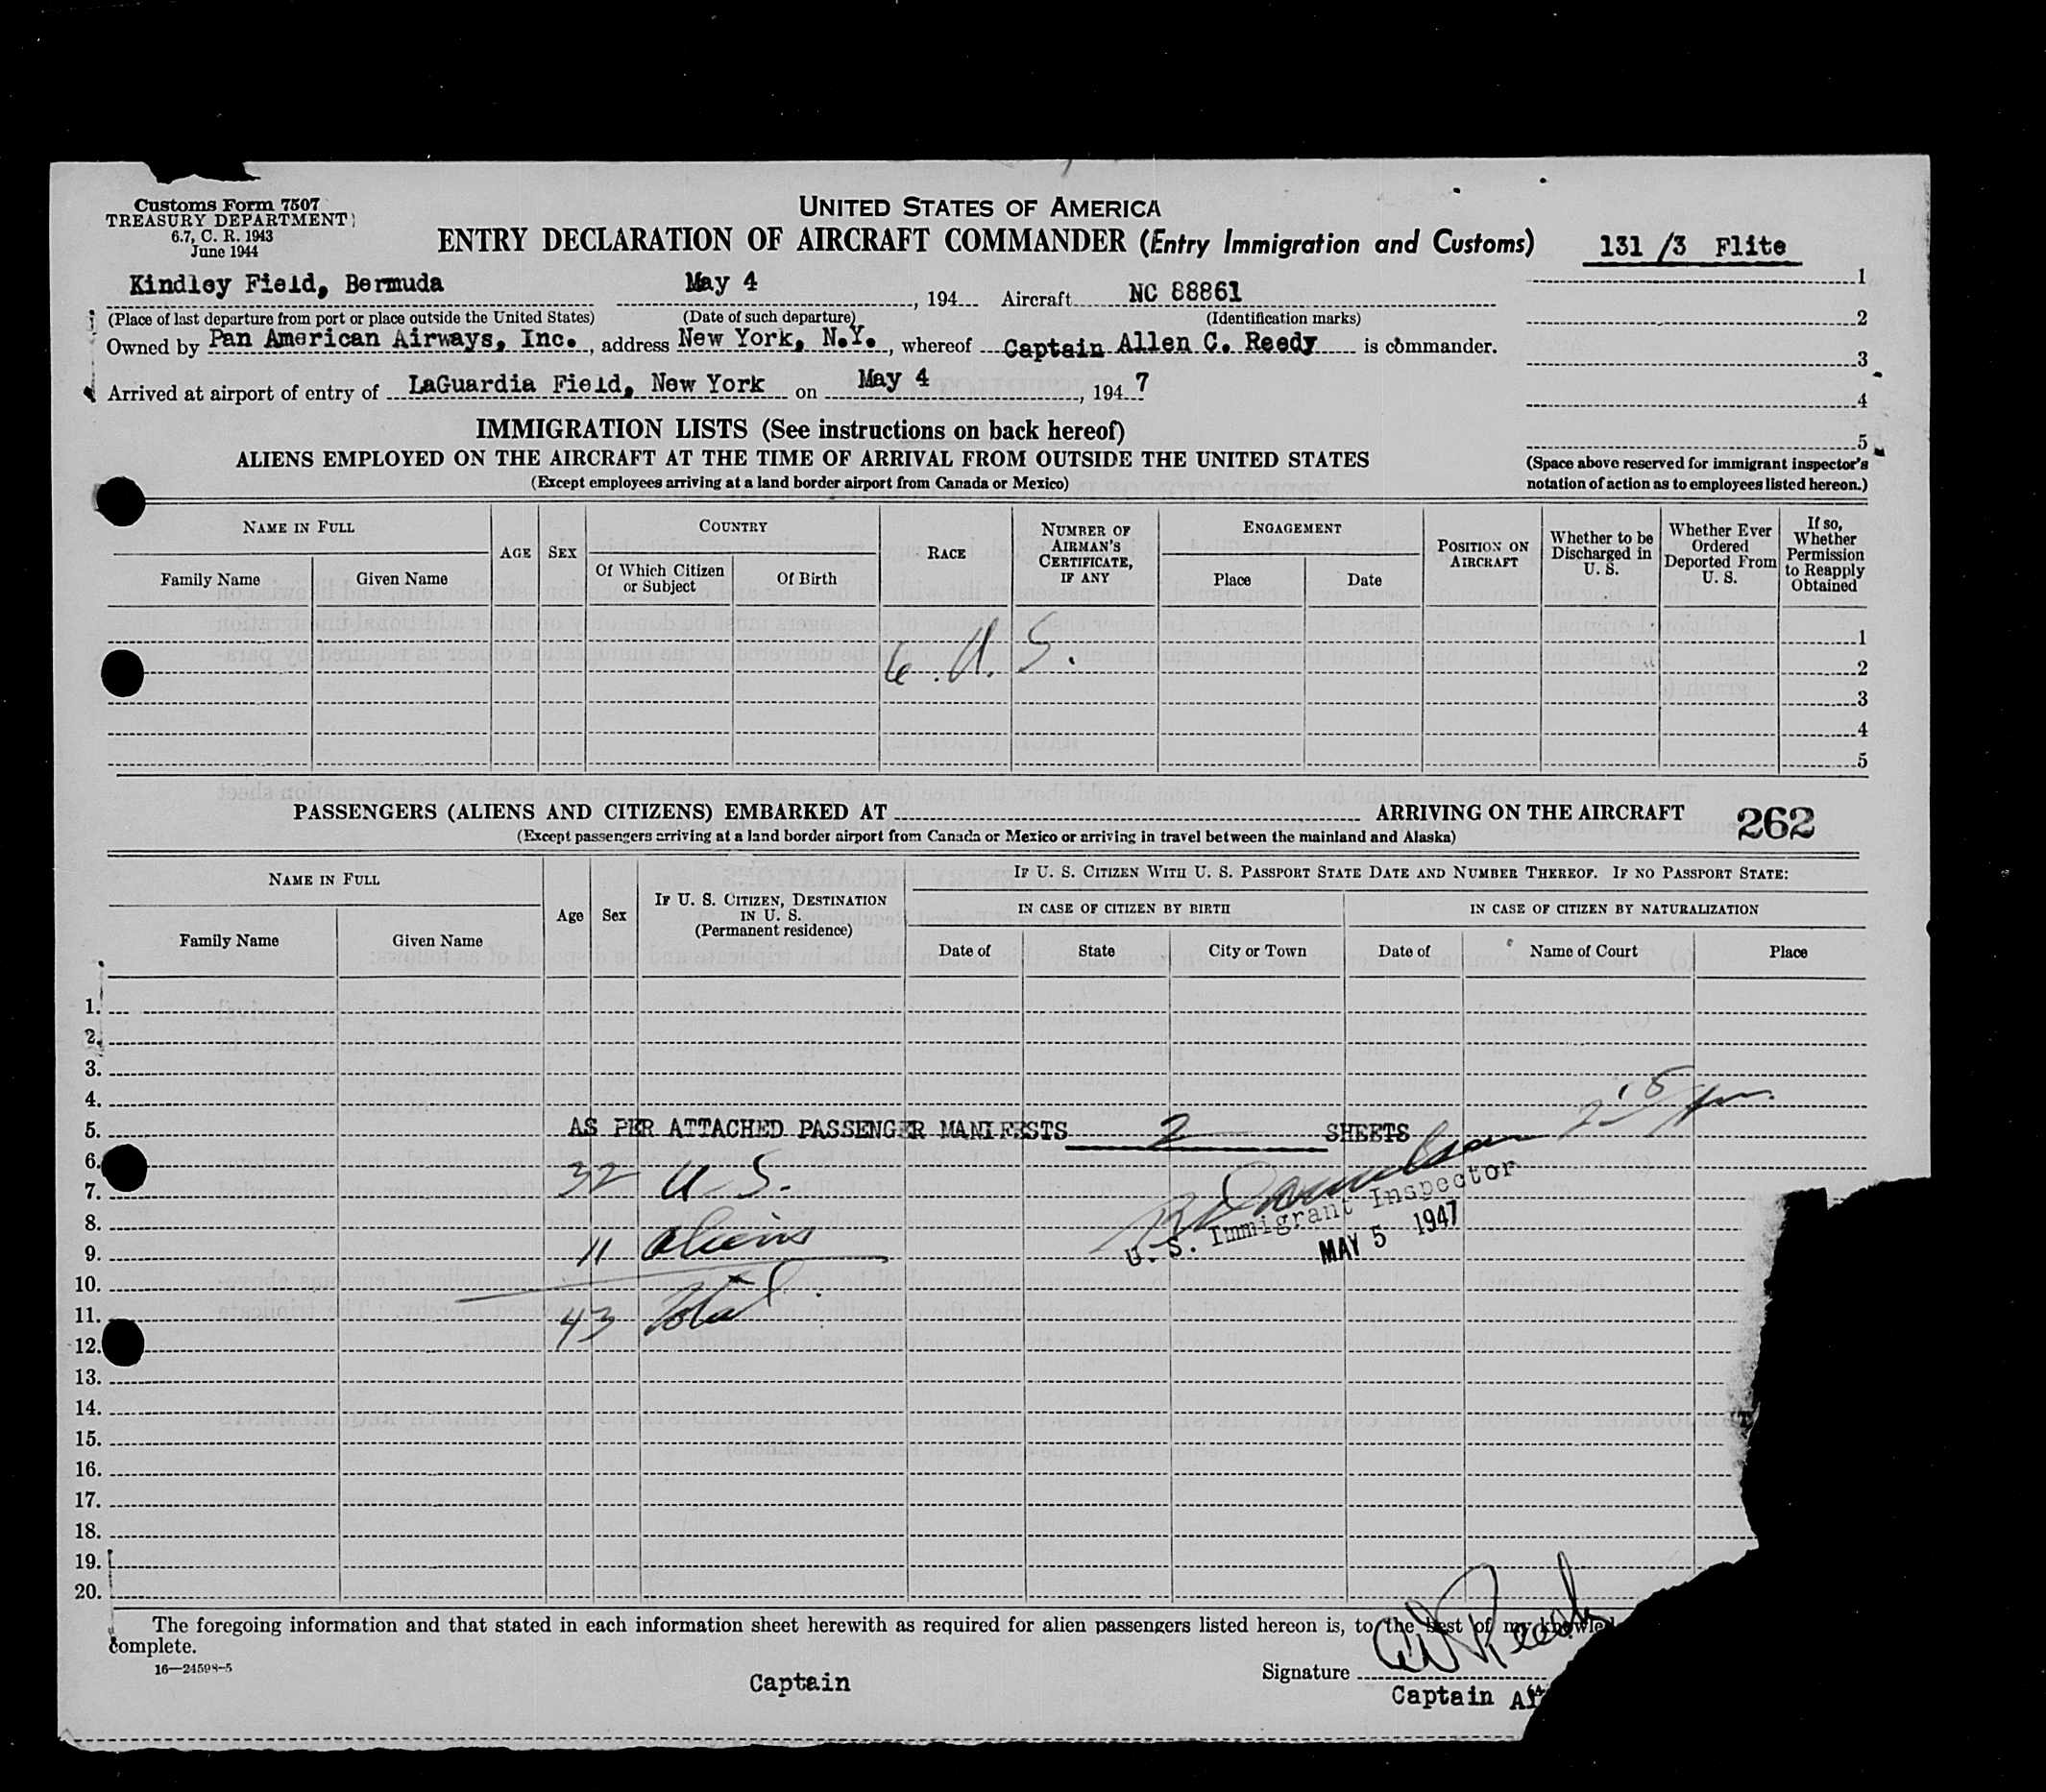 Customs Form 7507
TREASURY DEPARTMENT
6.7, C. R. 1943
June 1944
UNITED STATES OF AMERICA
ENTRY DECLARATION OF AIRCRAFT COMMANDER (Entry Immigration and Customs)
131 /3 Flite
Kindley Field, Bermuda May 4, 194 Aircraft NC 88861
(Place of last departure from port or place outside the United States) (Date of such departure) (Identification marks)
Owned by Pan American Airways, Inc., address New York, N.Y., whereof Captain Allen C. Reedy is commander.
Arrived at airport of entry of LaGuardia Field, New York on May 4, 194 7
1
2
3
4
5
(Space above reserved for immigrant inspector's
notation of action as to employees listed hereon.)
IMMIGRATION LISTS (See instructions on back hereof)
ALIENS EMPLOYED ON THE AIRCRAFT AT THE TIME OF ARRIVAL FROM OUTSIDE THE UNITED STATES
(Except employees arriving at a land border airport from Canada or Mexico)
NAME IN FULL
Family Name Given Name
AGE SEX
COUNTRY
Of Which Citizen
or Subject
Of Birth
RACE
NUMBER OF
AIRMAN'S
CERTIFICATE,
IF ANY
ENGAGEMENT
Place Date
POSITION ON
AIRCRAFT
Whether to be
Discharged in
U. S.
Whether Ever
Ordered
Deported From
U. S.
If so,
Whether
Permission
to Reapply
Obtained
1
6 U. S.
2
3
4
5
PASSENGERS (ALIENS AND CITIZENS) EMBARKED AT ARRIVING ON THE AIRCRAFT 262
(Except passengers arriving at a land border airport from Canada or Mexico or arriving in travel between the mainland and Alaska)
NAME IN FULL
Family Name Given Name
Age Sex
IF U. S. CITIZEN, DESTINATION
IN U. S.
(Permanent residence)
IF U. S. CITIZEN WITH U. S. PASSPORT STATE DATE AND NUMBER THEREOF. IF NO PASSPORT STATE:
IN CASE OF CITIZEN BY BIRTH IN CASE OF CITIZEN BY NATURALIZATION
Date of State City or Town Date of Name of Court Place
1.
2.
3.
4.
5. AS PER ATTACHED PASSENGER MANIFESTS 2 SHEETS
6.
7. 32 U. S.
U. S. Immigrant Inspector
MAY 5 1947
8.
9. 11 aliens
10.
11. 43 Total
12.
13.
14.
15.
16.
17.
18.
19.
20.
The foregoing information and that stated in each information sheet herewith as required for alien passengers listed hereon is, to the best of my
complete.
16—24598-5
Captain
Signature
Captain